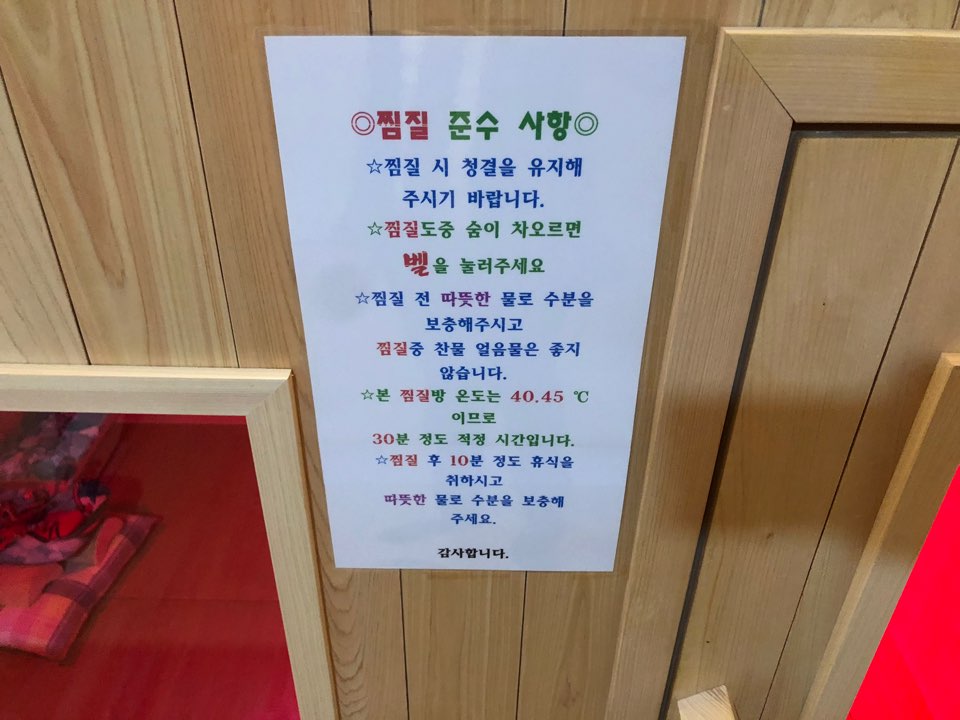 ◎찜질 준수 사항◎
☆찜질 시 청결을 유지해
주시기 바랍니다.
☆찜질도중 숨이 차오르면
벨을 눌러주세요
☆찜질 전 따뜻한 물로 수분을
보충해주시고
찜질중 찬물 얼음물은 좋지
않습니다.
☆본 찜질방 온도는 40.45 ℃
이므로
30분 정도 적정 시간입니다.
☆찜질 후 10분 정도 휴식을
취하시고
따뜻한 물로 수분을 보충해
주세요.
감사합니다.